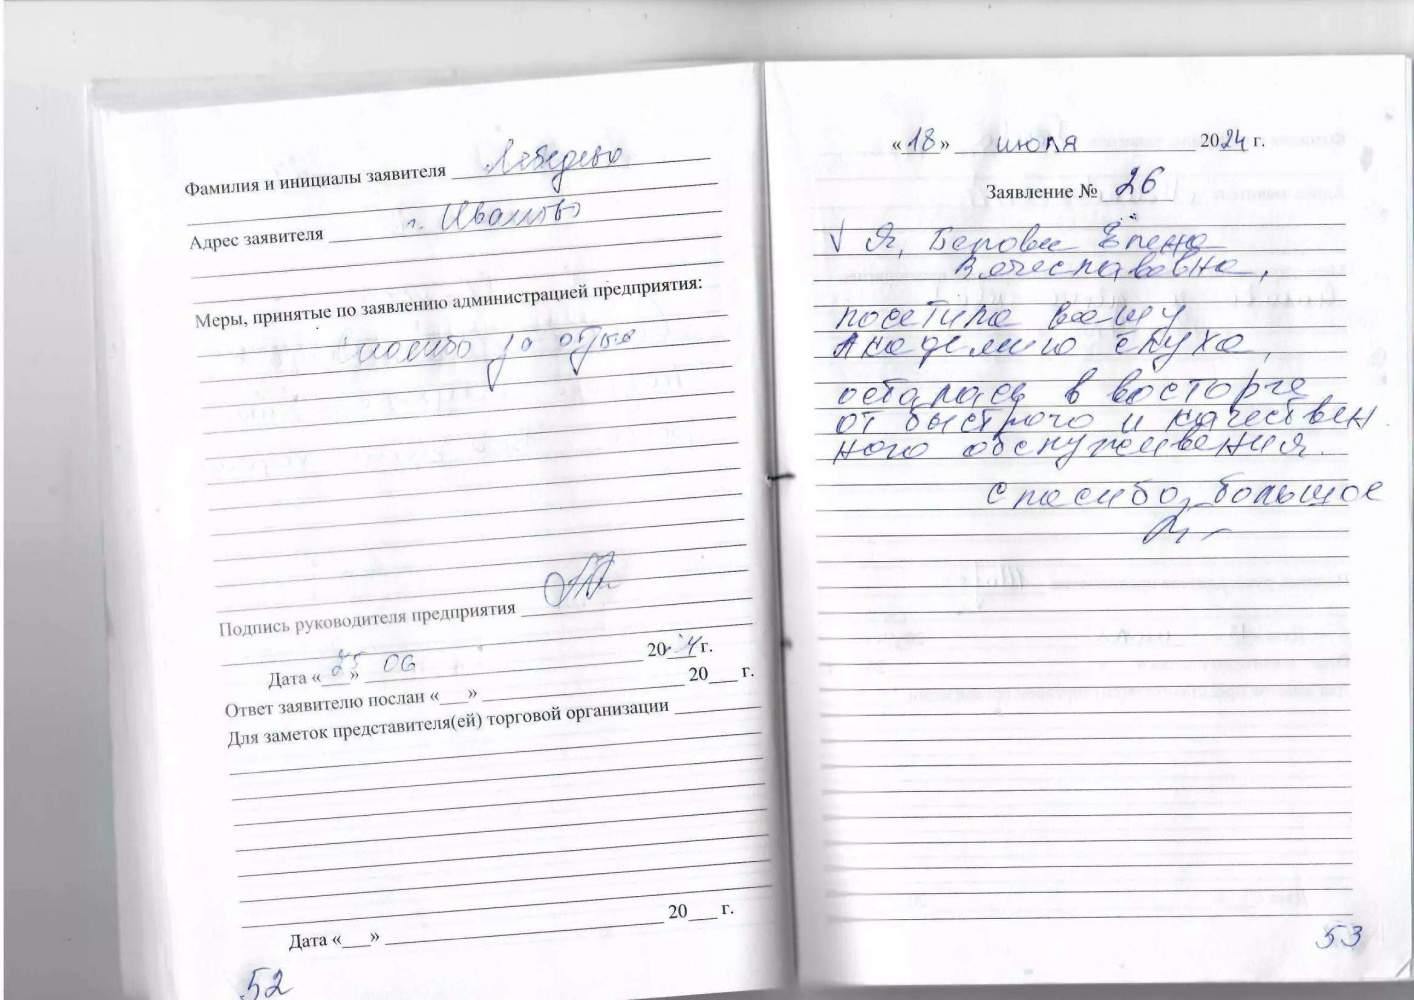 Фамилия и инициалы заявителя Лебедева
Адрес заявителя г. Иваново
Меры, принятые по заявлению администрацией предприятия:
Спасибо за отзыв
Подпись руководителя предприятия
Дата «25» 06 2024 г.
Ответ заявителю послан «___» 20___ г.
Для заметок представителя(ей) торговой организации
Дата «___» 20___ г.
52
«18» июля 2024 г.
Заявление № 26
V Я, Елена
Вячеславовна,
посетила вашу
Академию слуха,
осталась в восторге
от быстрого и качествен
ного обслуживения.
Спасибо большое
53